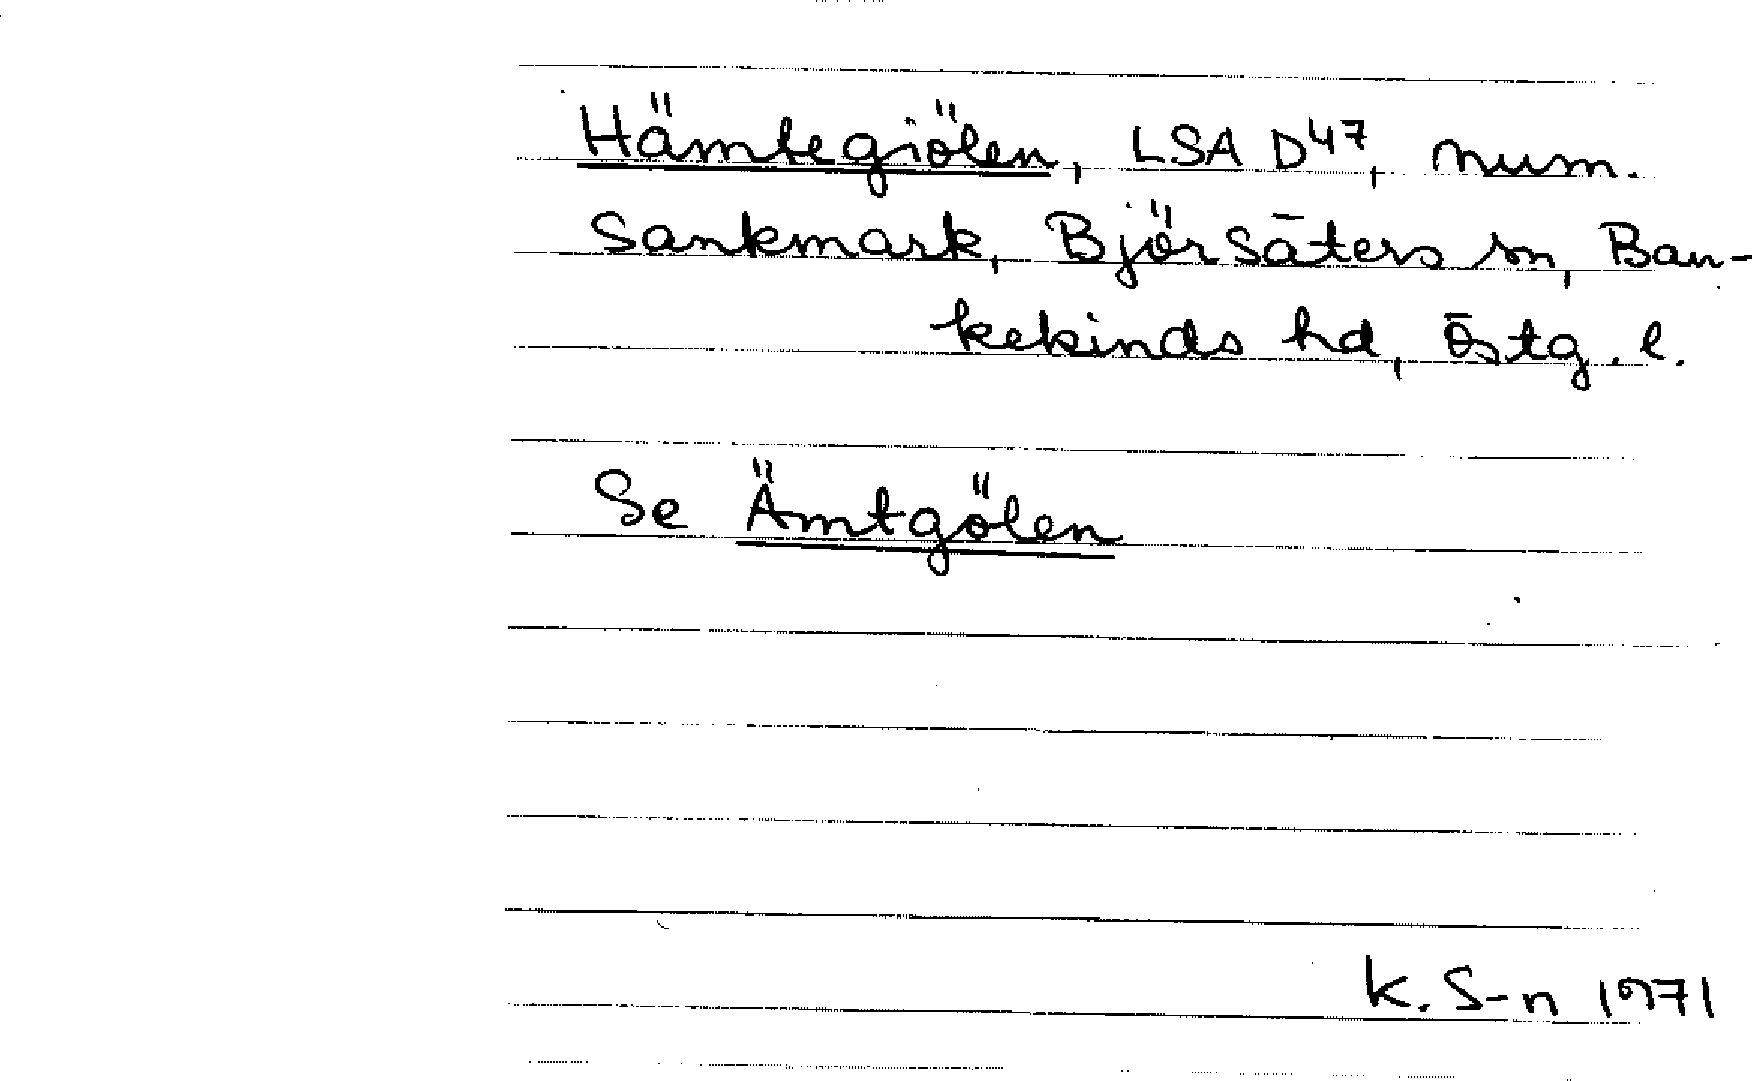 Hämtegiölen, LSA D47, num.
Sankmark, Björsäters sn, Ban-
kekinds hd, Östg. l.
Se Ämtgölen
K. S-n 1971